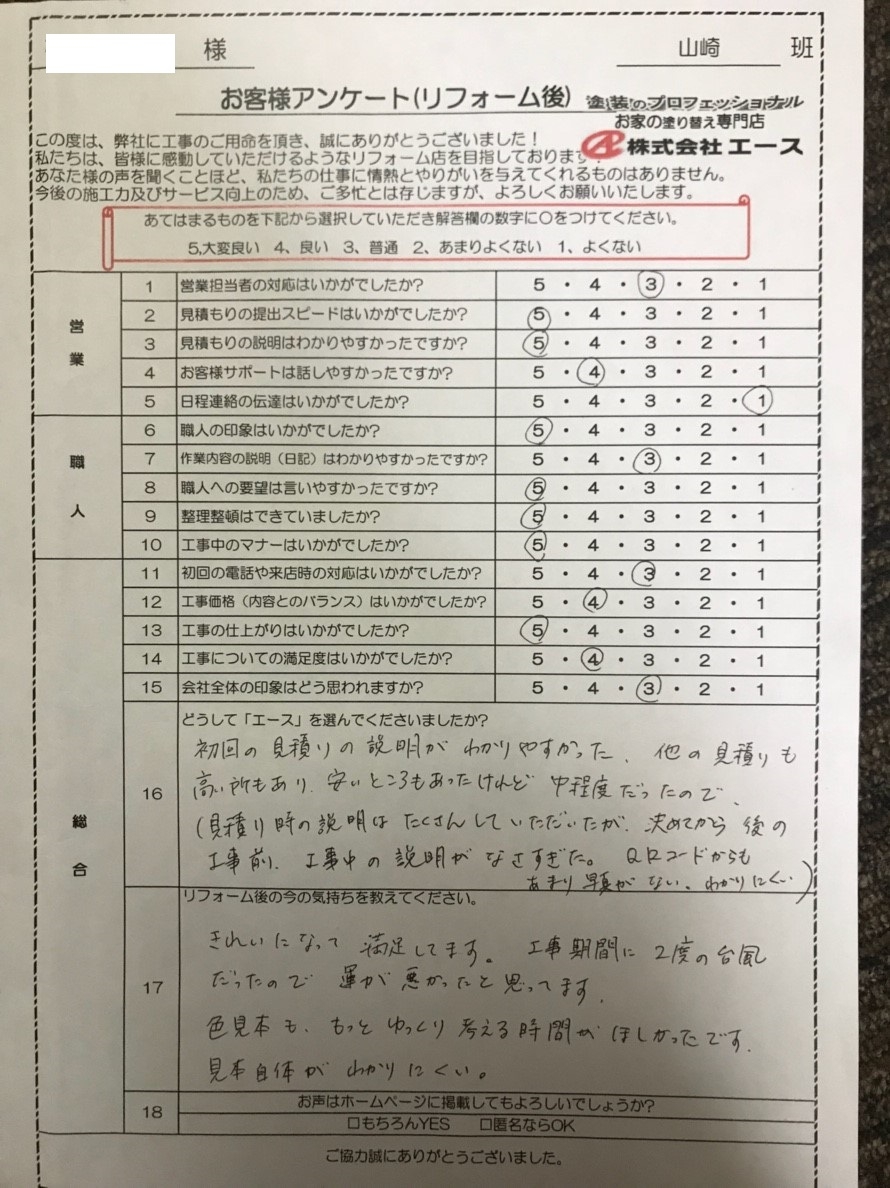 様 山崎 班
お客様アンケート(リフォーム後)
塗装のプロフェッショナル
お家の塗り替え専門店
株式会社 エース
この度は、弊社に工事のご用命を頂き、誠にありがとうございました！
私たちは、皆様に感動していただけるようなリフォーム店を目指しております
あなた様の声を聞くことほど、私たちの仕事に情熱とやりがいを与えてくれるものはありません。
今後の施工力及びサービス向上のため、ご多忙とは存じますが、よろしくお願いいたします。
あてはまるものを下記から選択していただき解答欄の数字に〇をつけてください。
5,大変良い 4、良い 3、普通 2、あまりよくない 1、よくない
営業
1 営業担当者の対応はいかがでしたか? 5・4・3・2・1
2 見積もりの提出スピードはいかがでしたか? 5・4・3・2・1
3 見積もりの説明はわかりやすかったですか? 5・4・3・2・1
4 お客様サポートは話しやすかったですか? 5・4・3・2・1
5 日程連絡の伝達はいかがでしたか? 5・4・3・2・1
職人
6 職人の印象はいかがでしたか? 5・4・3・2・1
7 作業内容の説明（日記）はわかりやすかったですか? 5・4・3・2・1
8 職人への要望は言いやすかったですか? 5・4・3・2・1
9 整理整頓はできていましたか? 5・4・3・2・1
10 工事中のマナーはいかがでしたか? 5・4・3・2・1
総合
11 初回の電話や来店時の対応はいかがでしたか? 5・4・3・2・1
12 工事価格（内容とのバランス）はいかがでしたか? 5・4・3・2・1
13 工事の仕上がりはいかがでしたか? 5・4・3・2・1
14 工事についての満足度はいかがでしたか? 5・4・3・2・1
15 会社全体の印象はどう思われますか? 5・4・3・2・1
16 どうして「エース」を選んでくださいましたか?
初回の見積りの説明がわかりやすかった、他の見積りも
高い所もあり、安いところもあったけれど中程度だったので、
(見積り時の説明はたくさんしていただいたが、決めてから後の
工事前、工事中の説明がなさすぎた。QRコードからも
あまり写真がない、わかりにくい)
17 リフォーム後の今の気持ちを教えてください。
きれいになって満足してます。工事期間に2度の台風
だったので運が悪かったと思ってます、
色見本も、もっとゆっくり考える時間がほしかったです、
見本自体がわかりにくい。
18 お声はホームページに掲載してもよろしいでしょうか?
□もちろんYES □匿名ならOK
ご協力誠にありがとうございました。